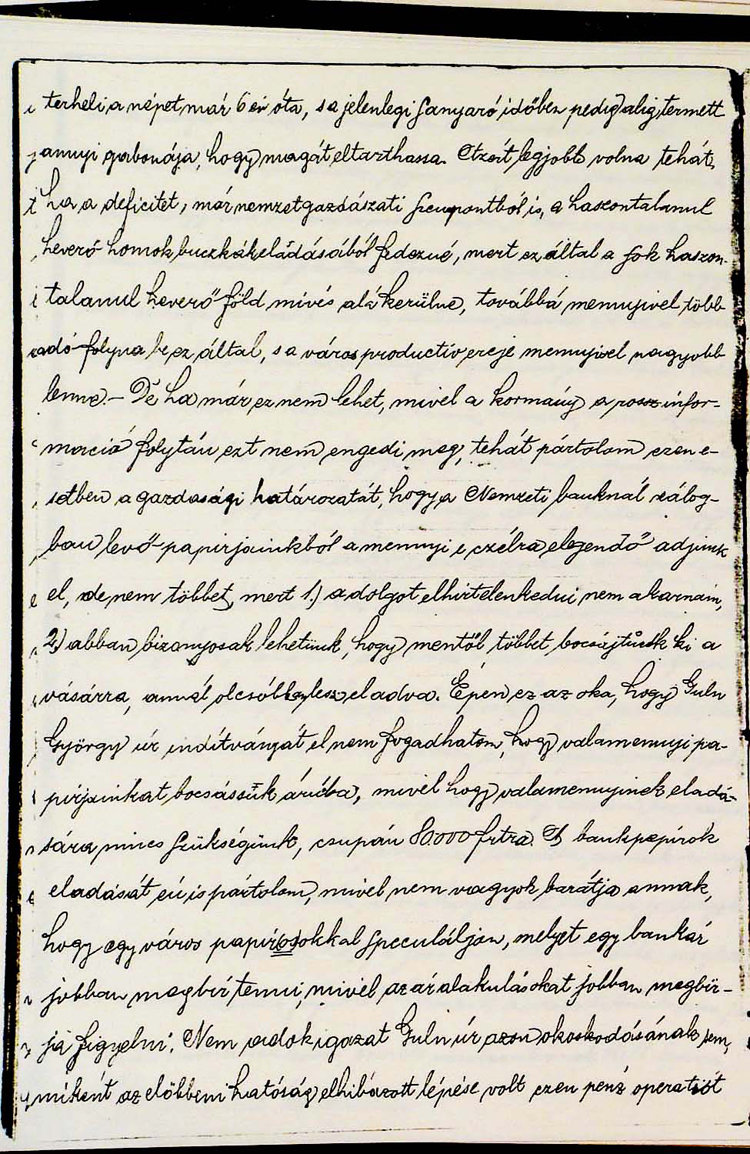 terheli a népet már 6 év óta, s a jelenlegi sanyaró időben pedig alig termett
annyi gabonája, hogy magát eltarthassa. Azért legjobb volna tehát,
ha a deficitet, már nemzetgazdászati szempontból is, a haszontalanul
heverő homok buczkák eladásából fedezné, mert ez által a sok haszon-
talanul heverő föld mivés alá kerülne, továbbá mennyivel több
adó folyna be ez által, s a város productiv ereje mennyivel nagyobb
lenne. – De ha már ez nem lehet, mivel a kormány a rossz infor-
máció folytán ezt nem engedi meg, tehát pártolom ezen e-
setben a gazdasági határozatát, hogy a Nemzeti banknál zálog-
ban levő papirjainkból a mennyi e czélra elegendő adjunk
el, de nem többet, mert 1.) a dolgot elhirtelenkedni nem akarnám,
2.) abban bizonyosak lehetünk, hogy mentől többet bocsájtunk ki a
vásárra, annál olcsóbb lesz eladva. Épen ez az oka, hogy Guln
György úr indítványát el nem fogadhatom, hogy valamennyi pa-
pirjainkat bocsássuk áruba, mivel hogy valamennyinek eladá-
sára nincs szükségünk, csupán 80.000 frtra. A bankpapírok
eladását én is pártolom, mivel nem vagyok barátja annak,
hogy egy város papirosokkal speculáljon, melyet egy bankár
jobban megbír tenni, mivel az ár alakulásokat jobban megbír-
já figyelni. Nem adok igazat Guln úr azon okoskodásának sem,
miként az előbbeni hatóság elhibázott lépése volt ezen pénz operatiót